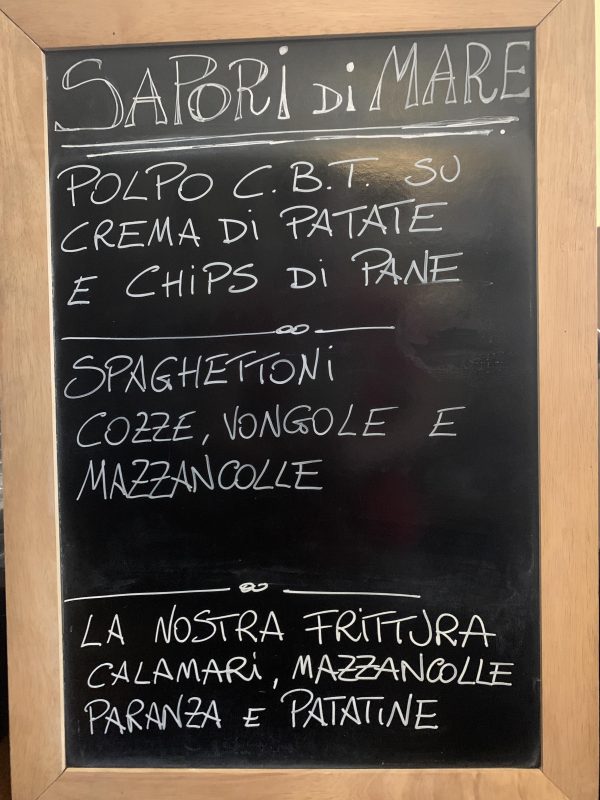 SAPORI DI MARE
POLPO C.B.T. SU
CREMA DI PATATE
E CHIPS DI PANE
SPAGHETTONI
COZZE, VONGOLE E
MAZZANCOLLE
LA NOSTRA FRITTURA
CALAMARI, MAZZANCOLLE
PARANZA E PATATINE